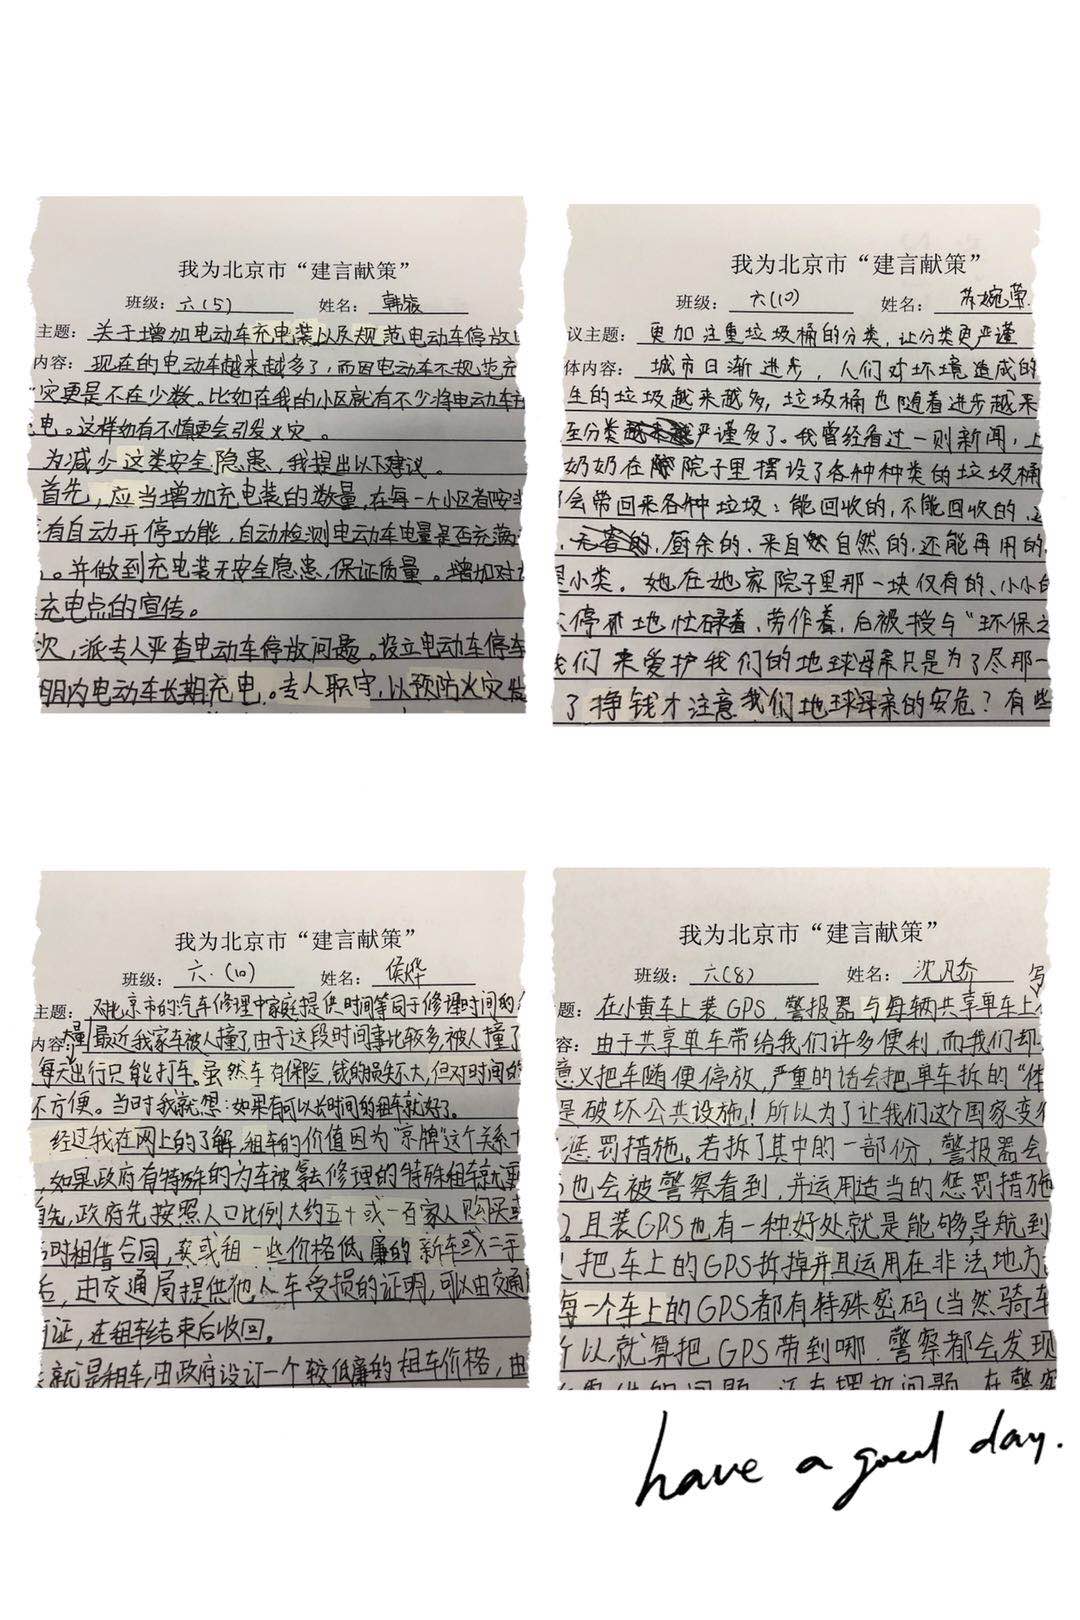 我为北京市“建言献策”
班级：六(5) 姓名：韩
主题：关于增加电动车充电装以及规范电动车停放
内容：现在的电动车越来越多了，而因电动车不规范充
灾更是不在少数。比如在我的小区就有不少将电动车
电。这样如有不慎更会引发火灾。
为减少这类安全隐患，我提出以下建议。
首先，应当增加充电装的数量，在每一个小区都安
有自动开停功能，自动检测电动车电量是否充满
。并做到充电装无安全隐患，保证质量。增加对
充电点的宣传。
次，派专人严查电动车停放问题。设立电动车停车
明内电动车长期充电。专人职守，以预防火灾发
我为北京市“建言献策”
班级：六(10) 姓名：苏婉莹
议主题：更加注重垃圾桶的分类，让分类更严谨
体内容：城市日渐进步，人们对环境造成的
生的垃圾越来越多，垃圾桶也随着进步越来
至分类严谨多了。我曾经看过一则新闻，上
奶奶在院子里摆设了各种种类的垃圾桶
了会带回来各种垃圾：能回收的，不能回收的，
，无害的，厨余的，来自自然的，还能再用的，
是小类。她在她家院子里那一块仅有的、小小的
停地忙碌着、劳作着，后被授与“环保之
我们来爱护我们的地球母亲只是为了尽那一
了挣钱才注意我们地球母亲的安危？有些
我为北京市“建言献策”
班级：六.(10) 姓名：侯烨
主题：对北京市的汽车修理中家庭提供时间等同于修理时间的
内容：最近我家车被人撞了，由于这段时间事比较多，被人撞了
每天出行只能打车。虽然车有保险，钱的损失不大，但对时间的
不方便。当时我就想：如果有可以长时间的租车就好了。
经过我在网上的了解，租车的价值因为“京牌”这个关系
，如果政府有特殊的为车被拿去修理的特殊租车就更
首先，政府先按照人口比例大约五十或一百家人购买或
时租借合同，卖或租一些价格低廉的新车或二手
后，由交通局提供他人车受损的证明，可以由交通
证，在租车结束后收回。
就是租车，由政府设订一个较低廉的租车价格，由
我为北京市“建言献策”
班级：六(8) 姓名：沈凡乔 写
题：在小黄车上装GPS、警报器与每辆共享单车上
容：由于共享单车带给我们许多便利，而我们却
意义把车随便停放，严重的话会把单车拆的“体
是破坏公共设施！所以为了让我们这个国家变
惩罚措施。若拆了其中的一部份，警报器会
也会被警察看到，并运用适当的惩罚措施
。且装GPS也有一种好处就是能够导航到
把车上的GPS拆掉并且运用在非法地方
每一个车上的GPS都有特殊密码（当然骑车
所以就算把GPS带到哪，警察都会发现
have a good day.